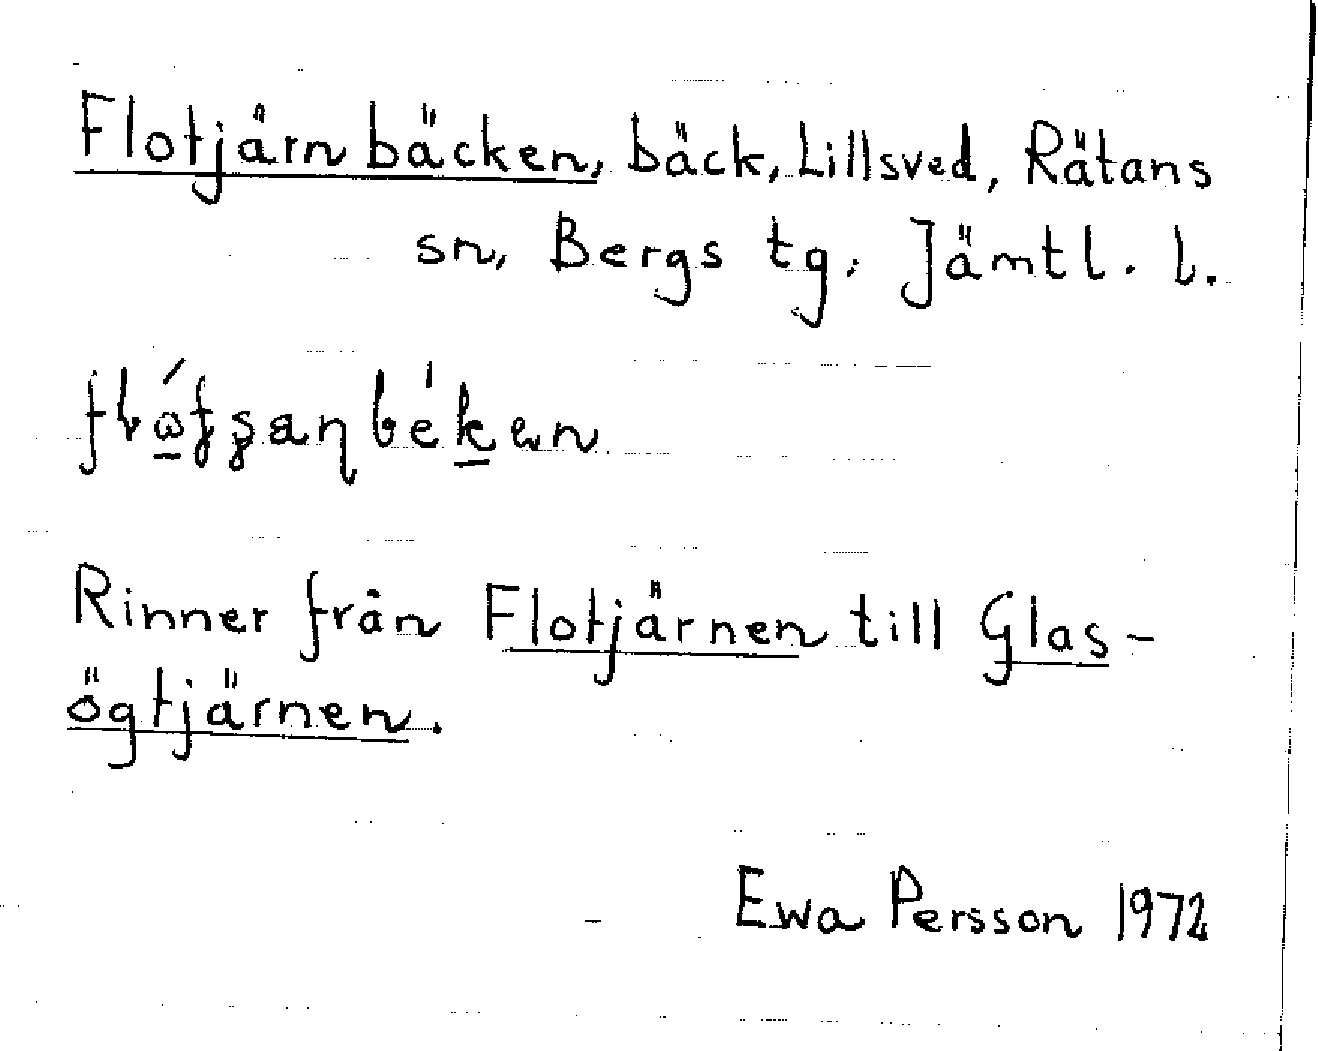 Flotjärnbäcken, bäck, Lillsved, Rätans
sn, Bergs tg, Jämtl. l.
Rinner från Flotjärnen till Glas-
ögtjärnen.
Ewa Persson 1972